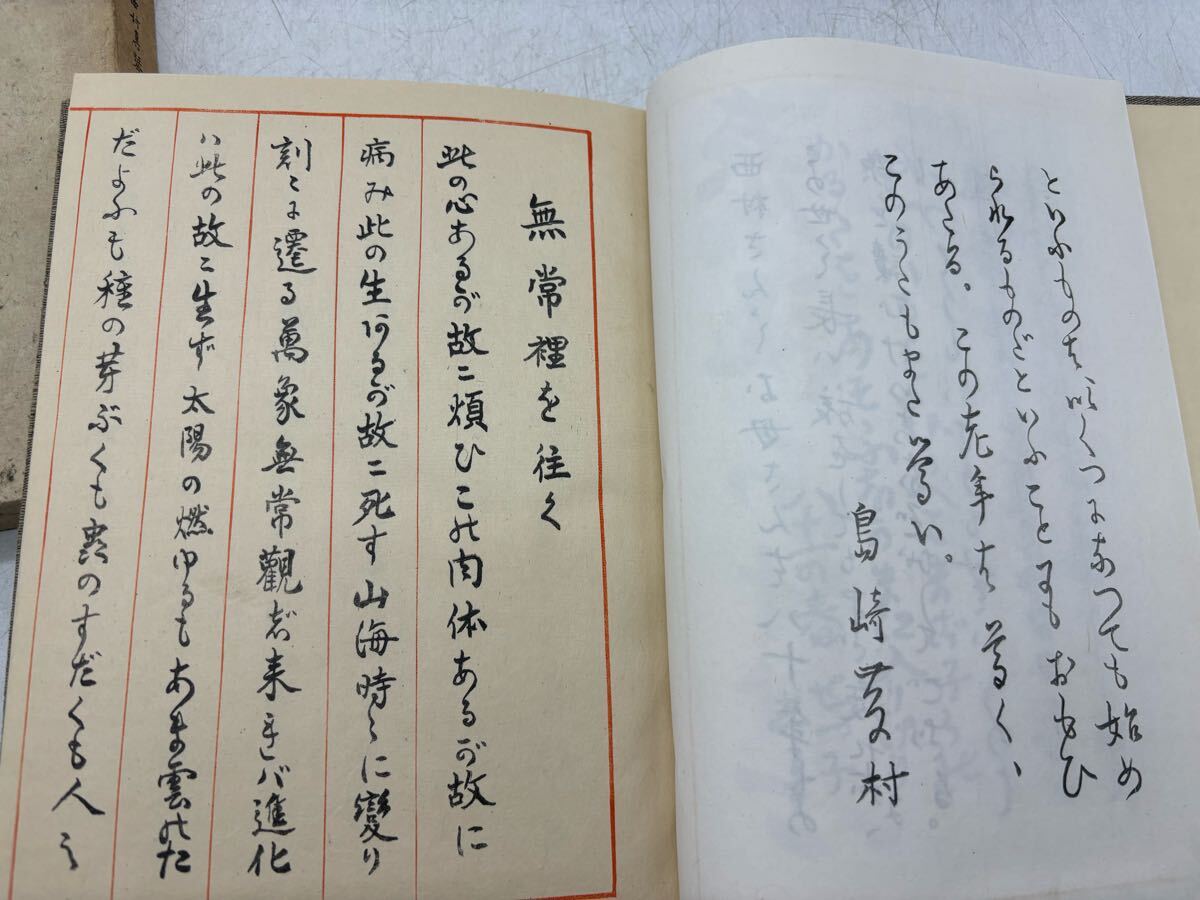 といふものはいくつになつても始め
られるものだといふことをもおもひ
あたる。この老年は尊く、
このうたもまた尊い。
島崎藤村
無常裡を往く
此の心あるが故に煩ひこの肉体あるが故に
病み此の生あるが故に死す山海時々に変り
刻々に遷る萬象無常觀じ来ればバ進化
ハ此の故に生ず太陽の燃ゆるもあま雲のた
だよふも種の芽ぶくも蟲のすだくも人